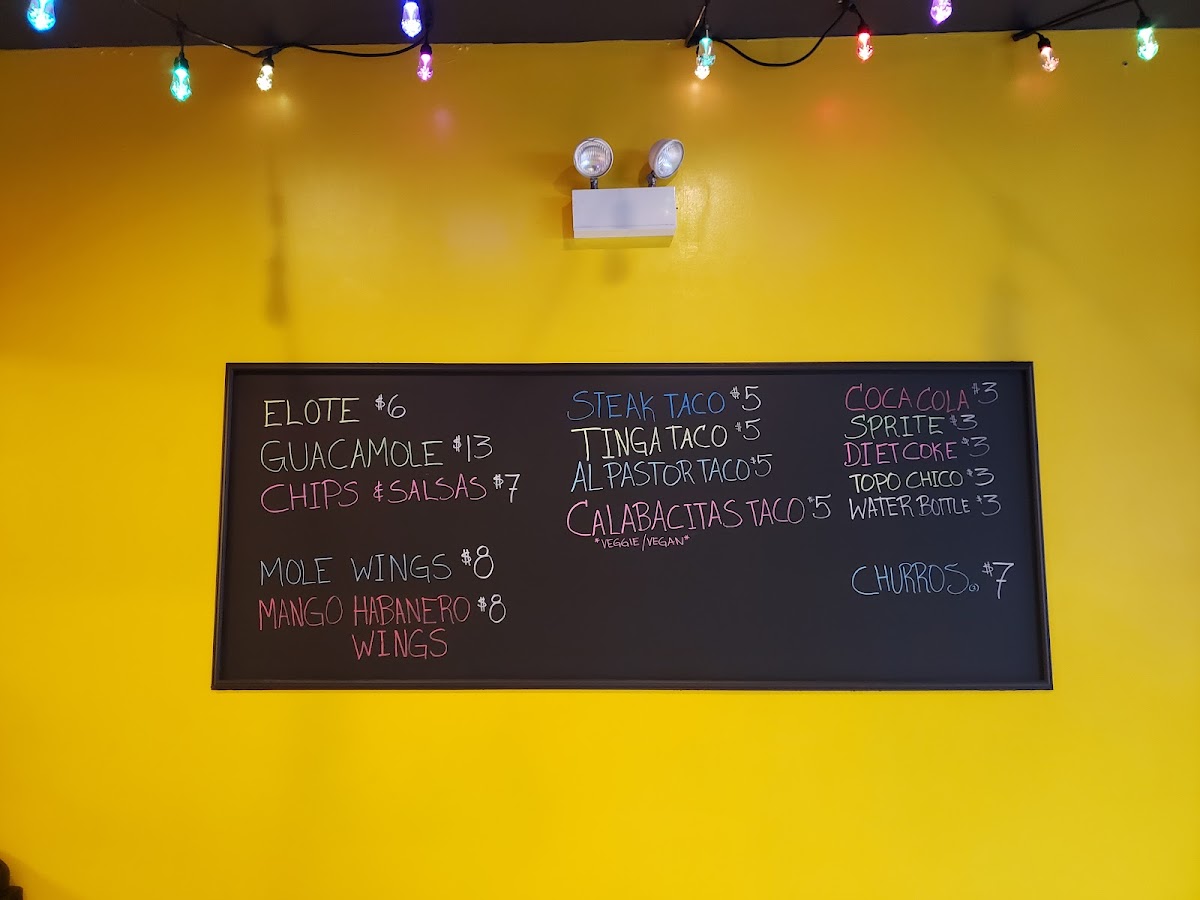 ELOTE $6
GUACAMOLE $13
CHIPS & SALSAS $7
MOLE WINGS $8
MANGO HABANERO $8
WINGS
STEAK TACO $5
TINGA TACO $5
AL PASTOR TACO $5
CALABACITAS TACO $5
*VEGGIE/VEGAN*
COCA COLA $3
SPRITE $3
DIET COKE $3
TOPO CHICO $3
WATER BOTTLE $3
CHURROS $7